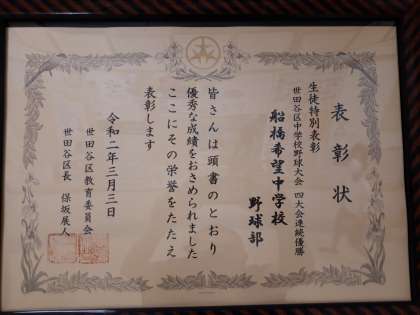 表彰状
生徒特別表彰
世田谷区中学校野球大会 四大会連続優勝
船橋希望中学校
野球部
皆さんは頭書のとおり
優秀な成績をおさめられました
ここにその栄誉をたたえ
表彰します
令和二年三月三日
世田谷区教育委員会
世田谷区長 保坂展人